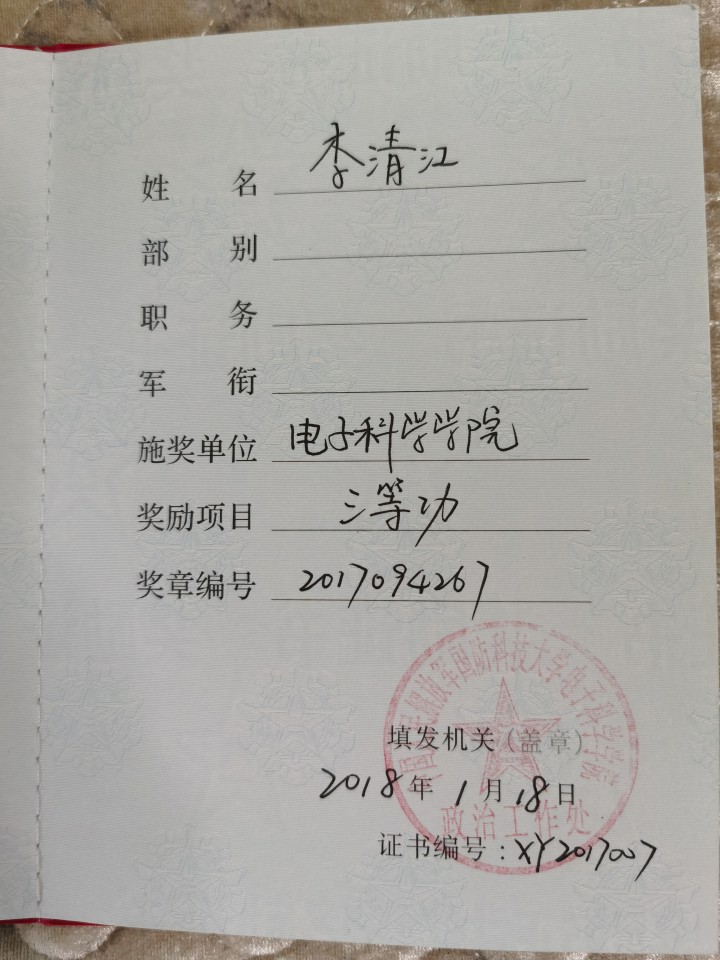 姓 名 李清江
部 别
职 务
军 衔
施奖单位 电子科学学院
奖励项目 三等功
奖章编号 2017094267
中国人民解放军国防科技大学电子科学学院
填发机关（盖章）
2018年1月18日
政治工作处
证书编号：XY2017007